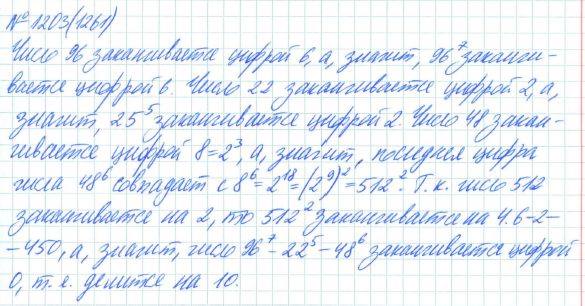 № 1203(1261)
Число 96 заканчивается цифрой 6, а, значит, 96⁷ заканчи-
вается цифрой 6. Число 22 заканчивается цифрой 2, а,
значит, 25⁵ заканчивается цифрой 2. Число 48 закан-
чивается цифрой 8=2³, а, значит, последняя цифра
числа 48⁶ совпадает с 8⁶=2¹⁸=(2⁹)²=512². Т.к. число 512
заканчивается на 2, то 512² заканчивается на 4. 6-2-
-450, а, значит, число 96⁷-22⁵-48⁶ заканчивается цифрой
0, т.е. делится на 10.